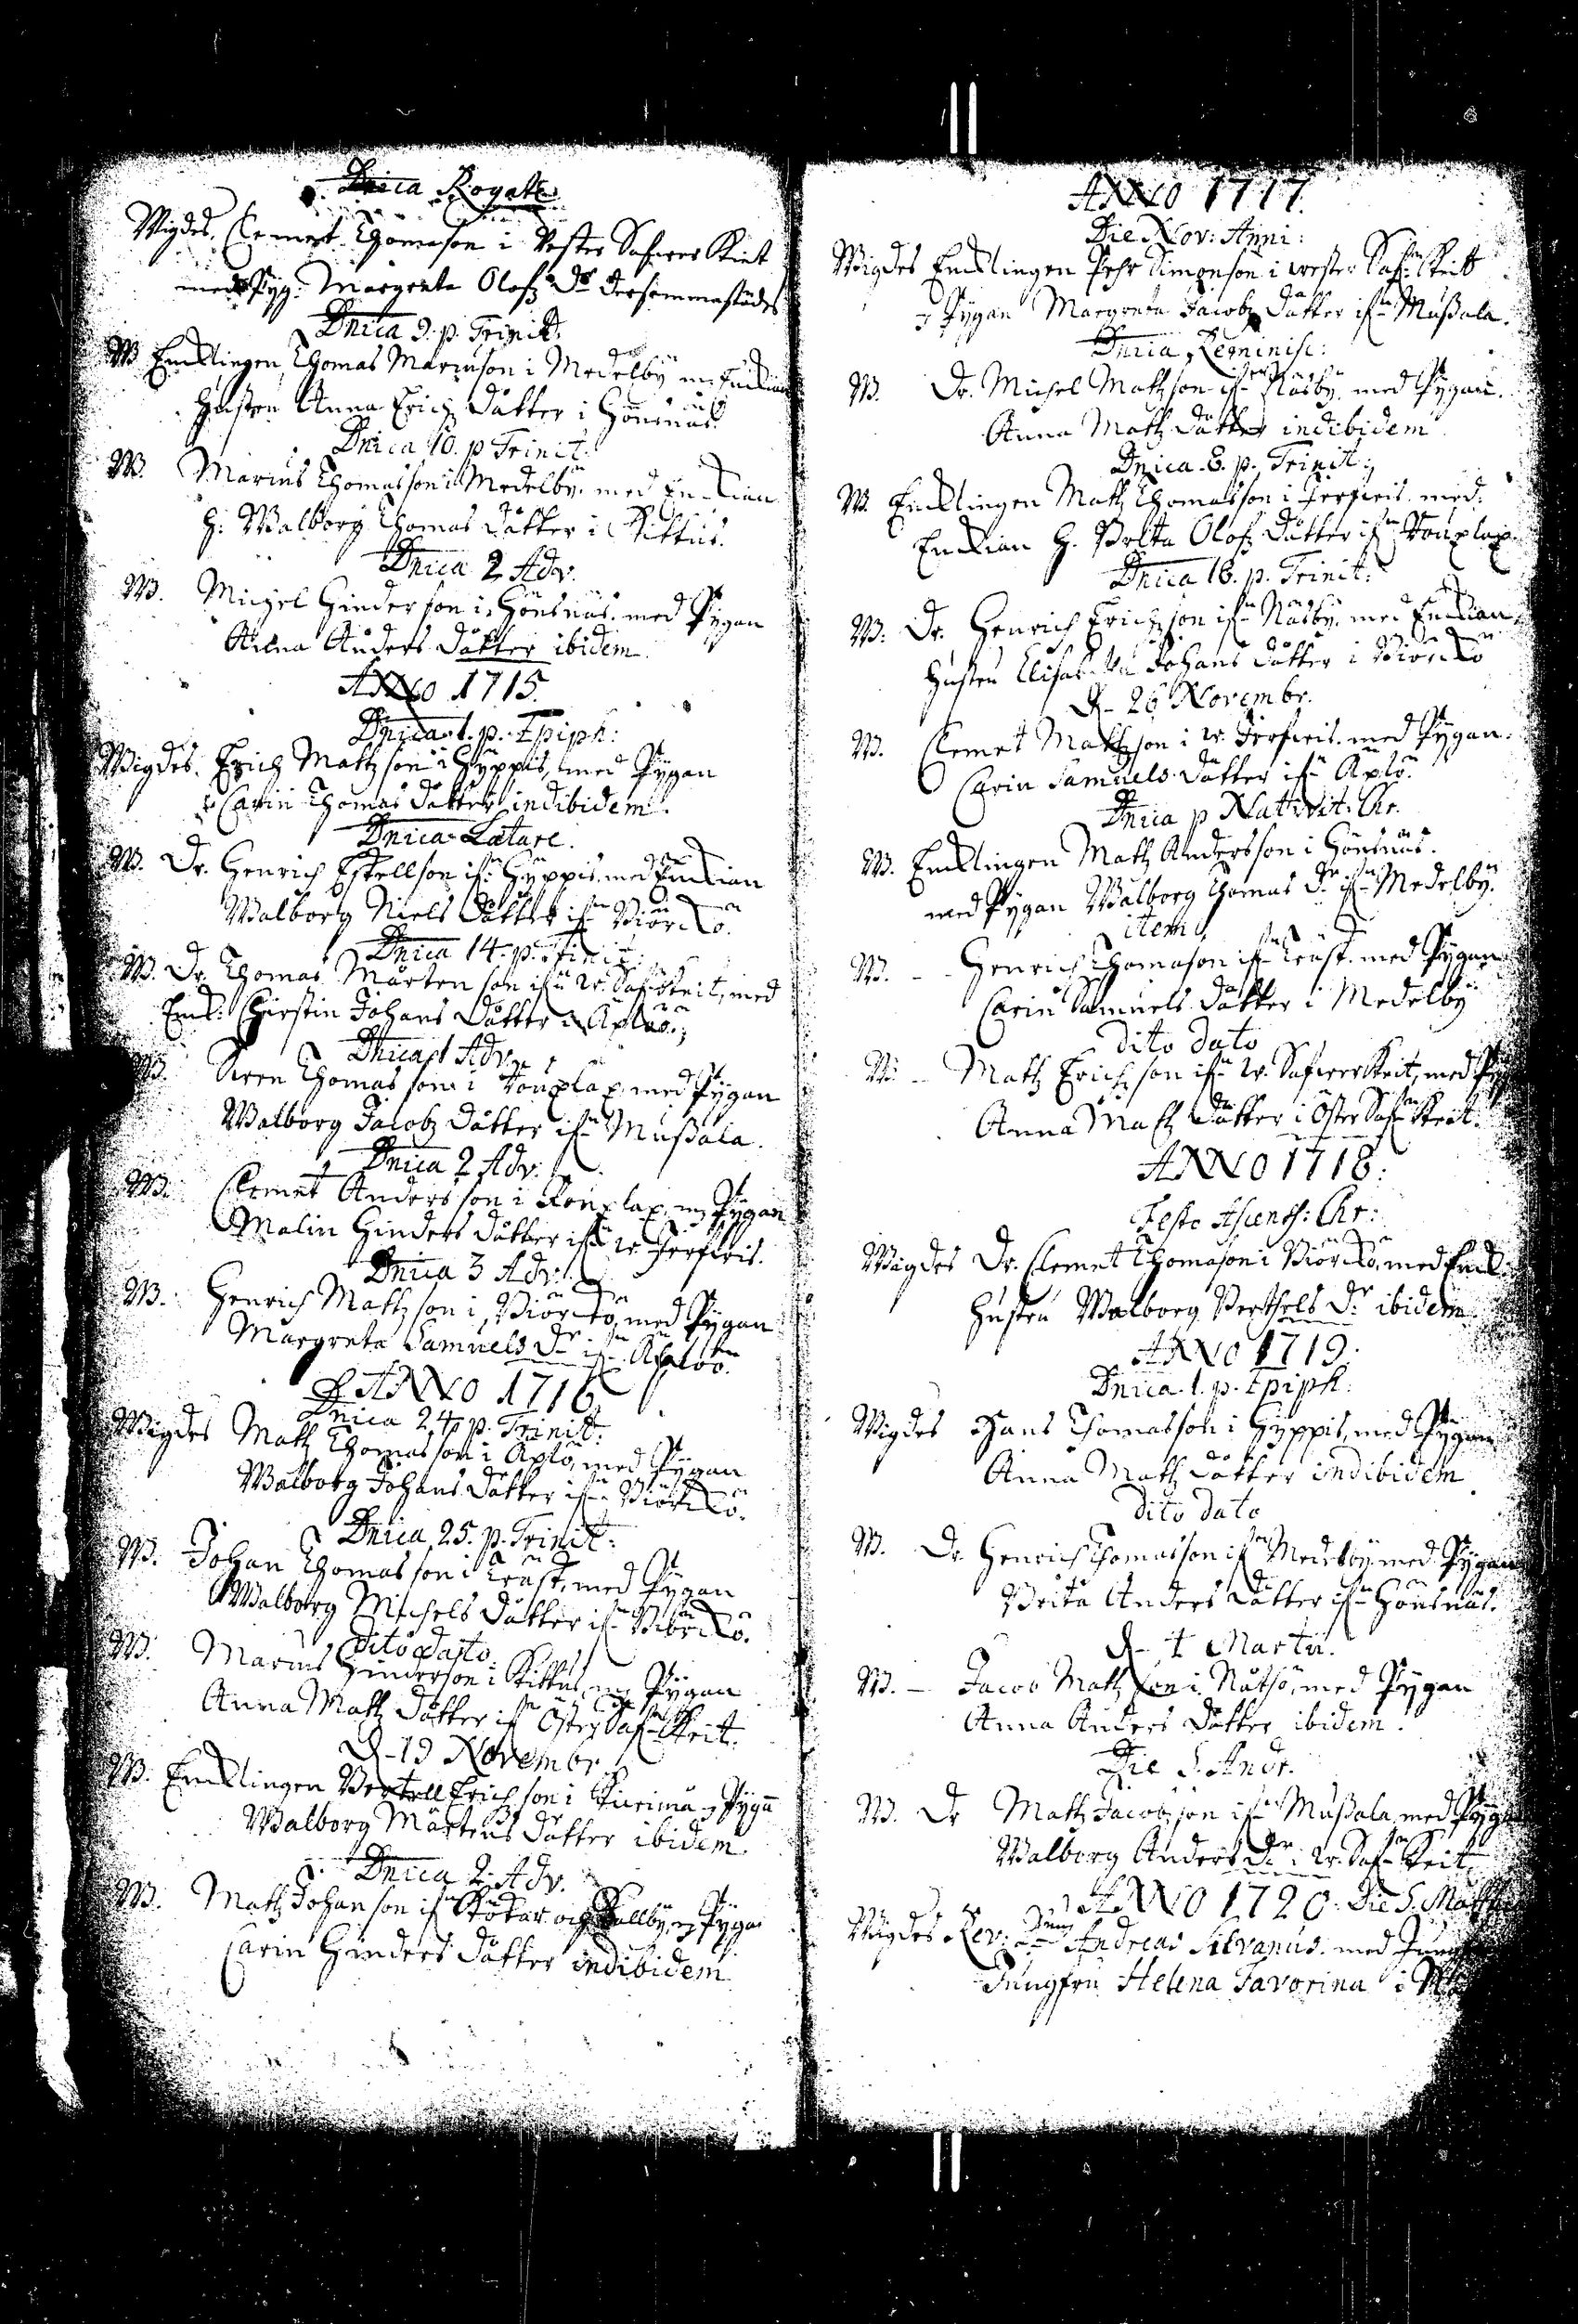 Dnica Rogate
Wigdes. Clemet Thomason i Vester Safwer Keit
med Pyg. Margreta Olofz Dr dersammastädes
Dnica 9. p. Trinit:
W Encklingen Thomas Mariuson i Medelby m Enckian
Hustru Anna Erichz dätter i Hönsnäs
Dnica 10. p Trinit:
W. Marius Thomasson i Medelby. med Enckian
H: Walborg Thomas dätter i Kittuis.
Dnica 2 Adv.
W. Michel Hinderson i Hönsnäs. med Pygan
Anna Anders dätter ibidem
ANNO 1715.
Dnica 1. p. Epiph:
Wigdes. Erich Mattzson i Hyppis, med Pygan
Carin Thomas dätter indibidem.
Dnica Lætare.
W. Dr. Henrich Eskellson ifrån Hyppis med Enckian
Walborg Niels dätter ifrån Biörkö.
Dnica 14. p. Trinit:
W. Dr. Thomas Mårtenson ifrån W. Saf: Keit, med
Enck: Chirstin Johans dätter i Aplöö.
Dnica 1 Adv.
W. Swen Thomasson i Tonplax, med Pygan
Walborg Jacobz dätter ifrån Mussala.
Dnica 2 Adv:
W. Clemet Andersson i Ronplax, m Pygan
Malin Hinders dätter ifrån W. Jerfweis.
Dnica 3 Adv:
W. Henrich Mattzson i Biörkö, med Pygan
Margreta Samuels Dr ifrån Aplöö.
ANNO 1716
Dnica 24 p. Trinit:
Wigdes Mattz Thomasson i Aplö, med Pygan
Walborg Johans dätter ifrån Biörkö.
Dnica 25. p. Trinit:
W. Johan Thomasson i Trask, med Pygan
Walborg Michels dätter ifrån Biörkö.
dito dato.
W. Marius Hinderson i Kittus, m Pygan
Anna Mattz dätter ifrån Öster Saf: Keit.
D. 19 Novembr.
W. Encklingen Bertell Erichson i Pygan
Walborg Mårtens dätter ibidem
Dnica 2 Adv.
W. Mattz Johanson ifrån Kökar och Källby, m Pygan
Carin Hinders dätter indibidem.
ANNO 1717.
Die Nov: Anni:
Wigdes Encklingen Pehr Simonson i wester Saf: Keit
Pygan Margreta Jacobz dätter ifrån Mussala.
Dnica Reminisc:
W. Dr. Michel Mattzson ifrån Näsby. med Pygan.
Anna Mattz dätter indibidem
Dnica. 8. p. Trinit:
W. Encklingen Mattz Thomasson i Jerfweis. med.
Enckian H. Brita Olofz dätter ifrån Tonplax.
Dnica 18. p. Trinit:
W. Dr. Henrich Erichzson ifrån Näsby. med Enckian
Hustru Elisabetha Johans dätter i Biörkö
D. 26 Novembr.
W. Clemet Mattzson i W. Jerfweis. med Pygan.
Carin Samuels dätter ifrån Aplö.
Dnica p Nativit: Chr.
W. Encklingen Mattz Andersson i Hönsnäs.
med Pygan Walborg Thomas Dr ifrån Medelby.
item
W. Henrich Thomason ifrån Trask. med Pygan
Carin Samuels dätter i Medelby
dito dato
W. Mattz Erichson ifrån W. Safwer Keit, med Pyg
Anna Mattz dätter i Öster Saf: Keit.
ANNO 1718:
Festo Ascens: Chr:
Wigdes Dr. Clemet Thomason i Biörkö, med Enck:
Hustru Walborg Berthels Dr ibidem
ANNO 1719.
Dnica. 1. p. Epiph:
Wigdes Hans Thomasson i Hyppis, med Pygan
Anna Mattz dätter indibidem
dito dato
W. Dr. Henrich Thomasson ifrån Medelby med Pygan
Brita Anders dätter ifrån Hönsnäs.
D. 1 Martii.
W. Jacob Mattzson i Nätsö, med Pygan
Anna Anders dätter ibidem.
Die S. Andr.
W. Dr Mattz Jacobzson ifrån Mussala, med Pygan
Walborg Anders Dr i W. Saf: Keit.
ANNO 1720. Die S. Matthi
Wigdes Rev: Dnus Andreas Silvanus. med
Jungfru Helena Favorina i